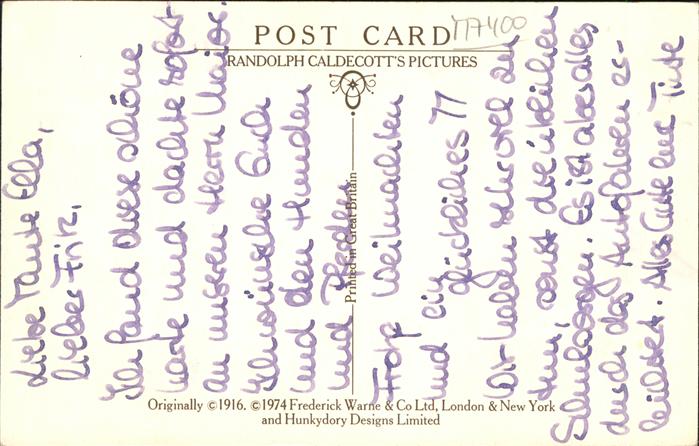 POST CARD
M7400
RANDOLPH CALDECOTT'S PICTURES
Printed in Great Britain
Liebe Tante Ella,
lieber Fritz,
Ich fand diese schöne
Karte und dachte sofort
an unseren Herrn Major.
Ich wünsche Euch
und den Hunden
und Pferden
Frohe Weihnachten
und ein
glückliches 77
Wir haben sehr viel zu
tun, sonst die üblichen
Es ist aber alles
durch das Autofahren er-
leichtert. Alles Gute Eure Tinte
Originally ©1916. ©1974 Frederick Warne & Co Ltd, London & New York
and Hunkydory Designs Limited